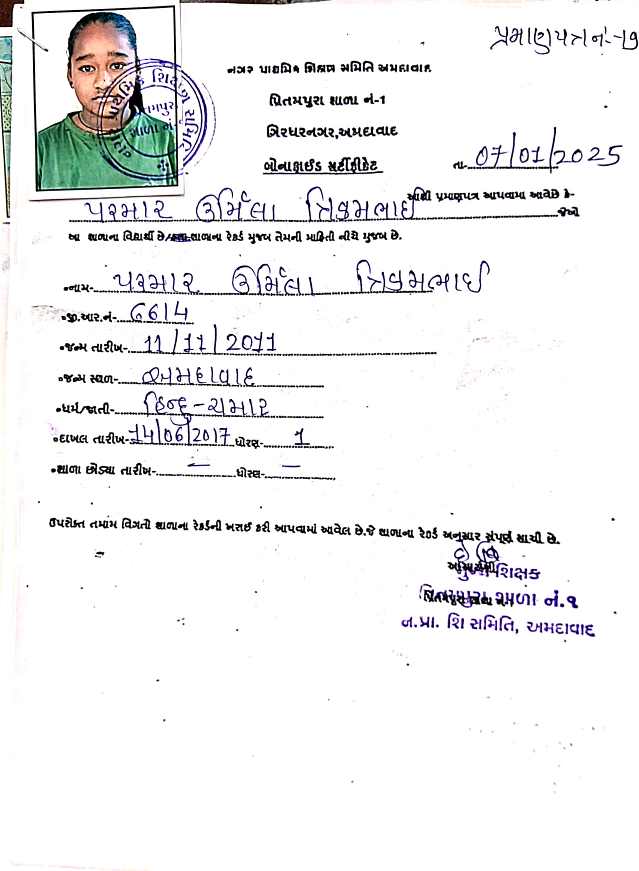 પ્રમાણપત્ર નં.-૧૭
નગર પ્રાથમિક શિક્ષણ સમિતિ અમદાવાદ
પ્રિતમપુરા શાળા નં-1
ગિરધરનગર,અમદાવાદ
બોનાફાઈડ સર્ટીફીકેટ
તા- 07/01/2025
આથી પ્રમાણપત્ર આપવામાં આવેછે કે-
પરમાર ઉર્મિલા ત્રિકમભાઈ જેઓ
આ શાળાના વિદ્યાર્થી છે. શાળાના રેકર્ડ મુજબ તેમની માહિતી નીચે મુજબ છે.
•નામ- પરમાર ઉર્મિલા ત્રિકમભાઈ
•જી.આર.નં- 6614
•જન્મ તારીખ- 11/11/2011
•જન્મ સ્થળ- અમદાવાદ
•ધર્મ/જાતી- હિન્દુ - ચમાર
•દાખલ તારીખ- 14/06/2017 ધોરણ- 1
•શાળા છોડ્યા તારીખ- — ધોરણ- —
ઉપરોક્ત તમામ વિગતો શાળાના રેકર્ડની ખરાઈ કરી આપવામાં આવેલ છે.જે શાળાના રેકર્ડ અનુસાર સંપૂર્ણ સાચી છે.
મુખ્ય શિક્ષક
પ્રિતમપુરા શાળા નં.૧
ન.પ્રા. શિ સમિતિ, અમદાવાદ